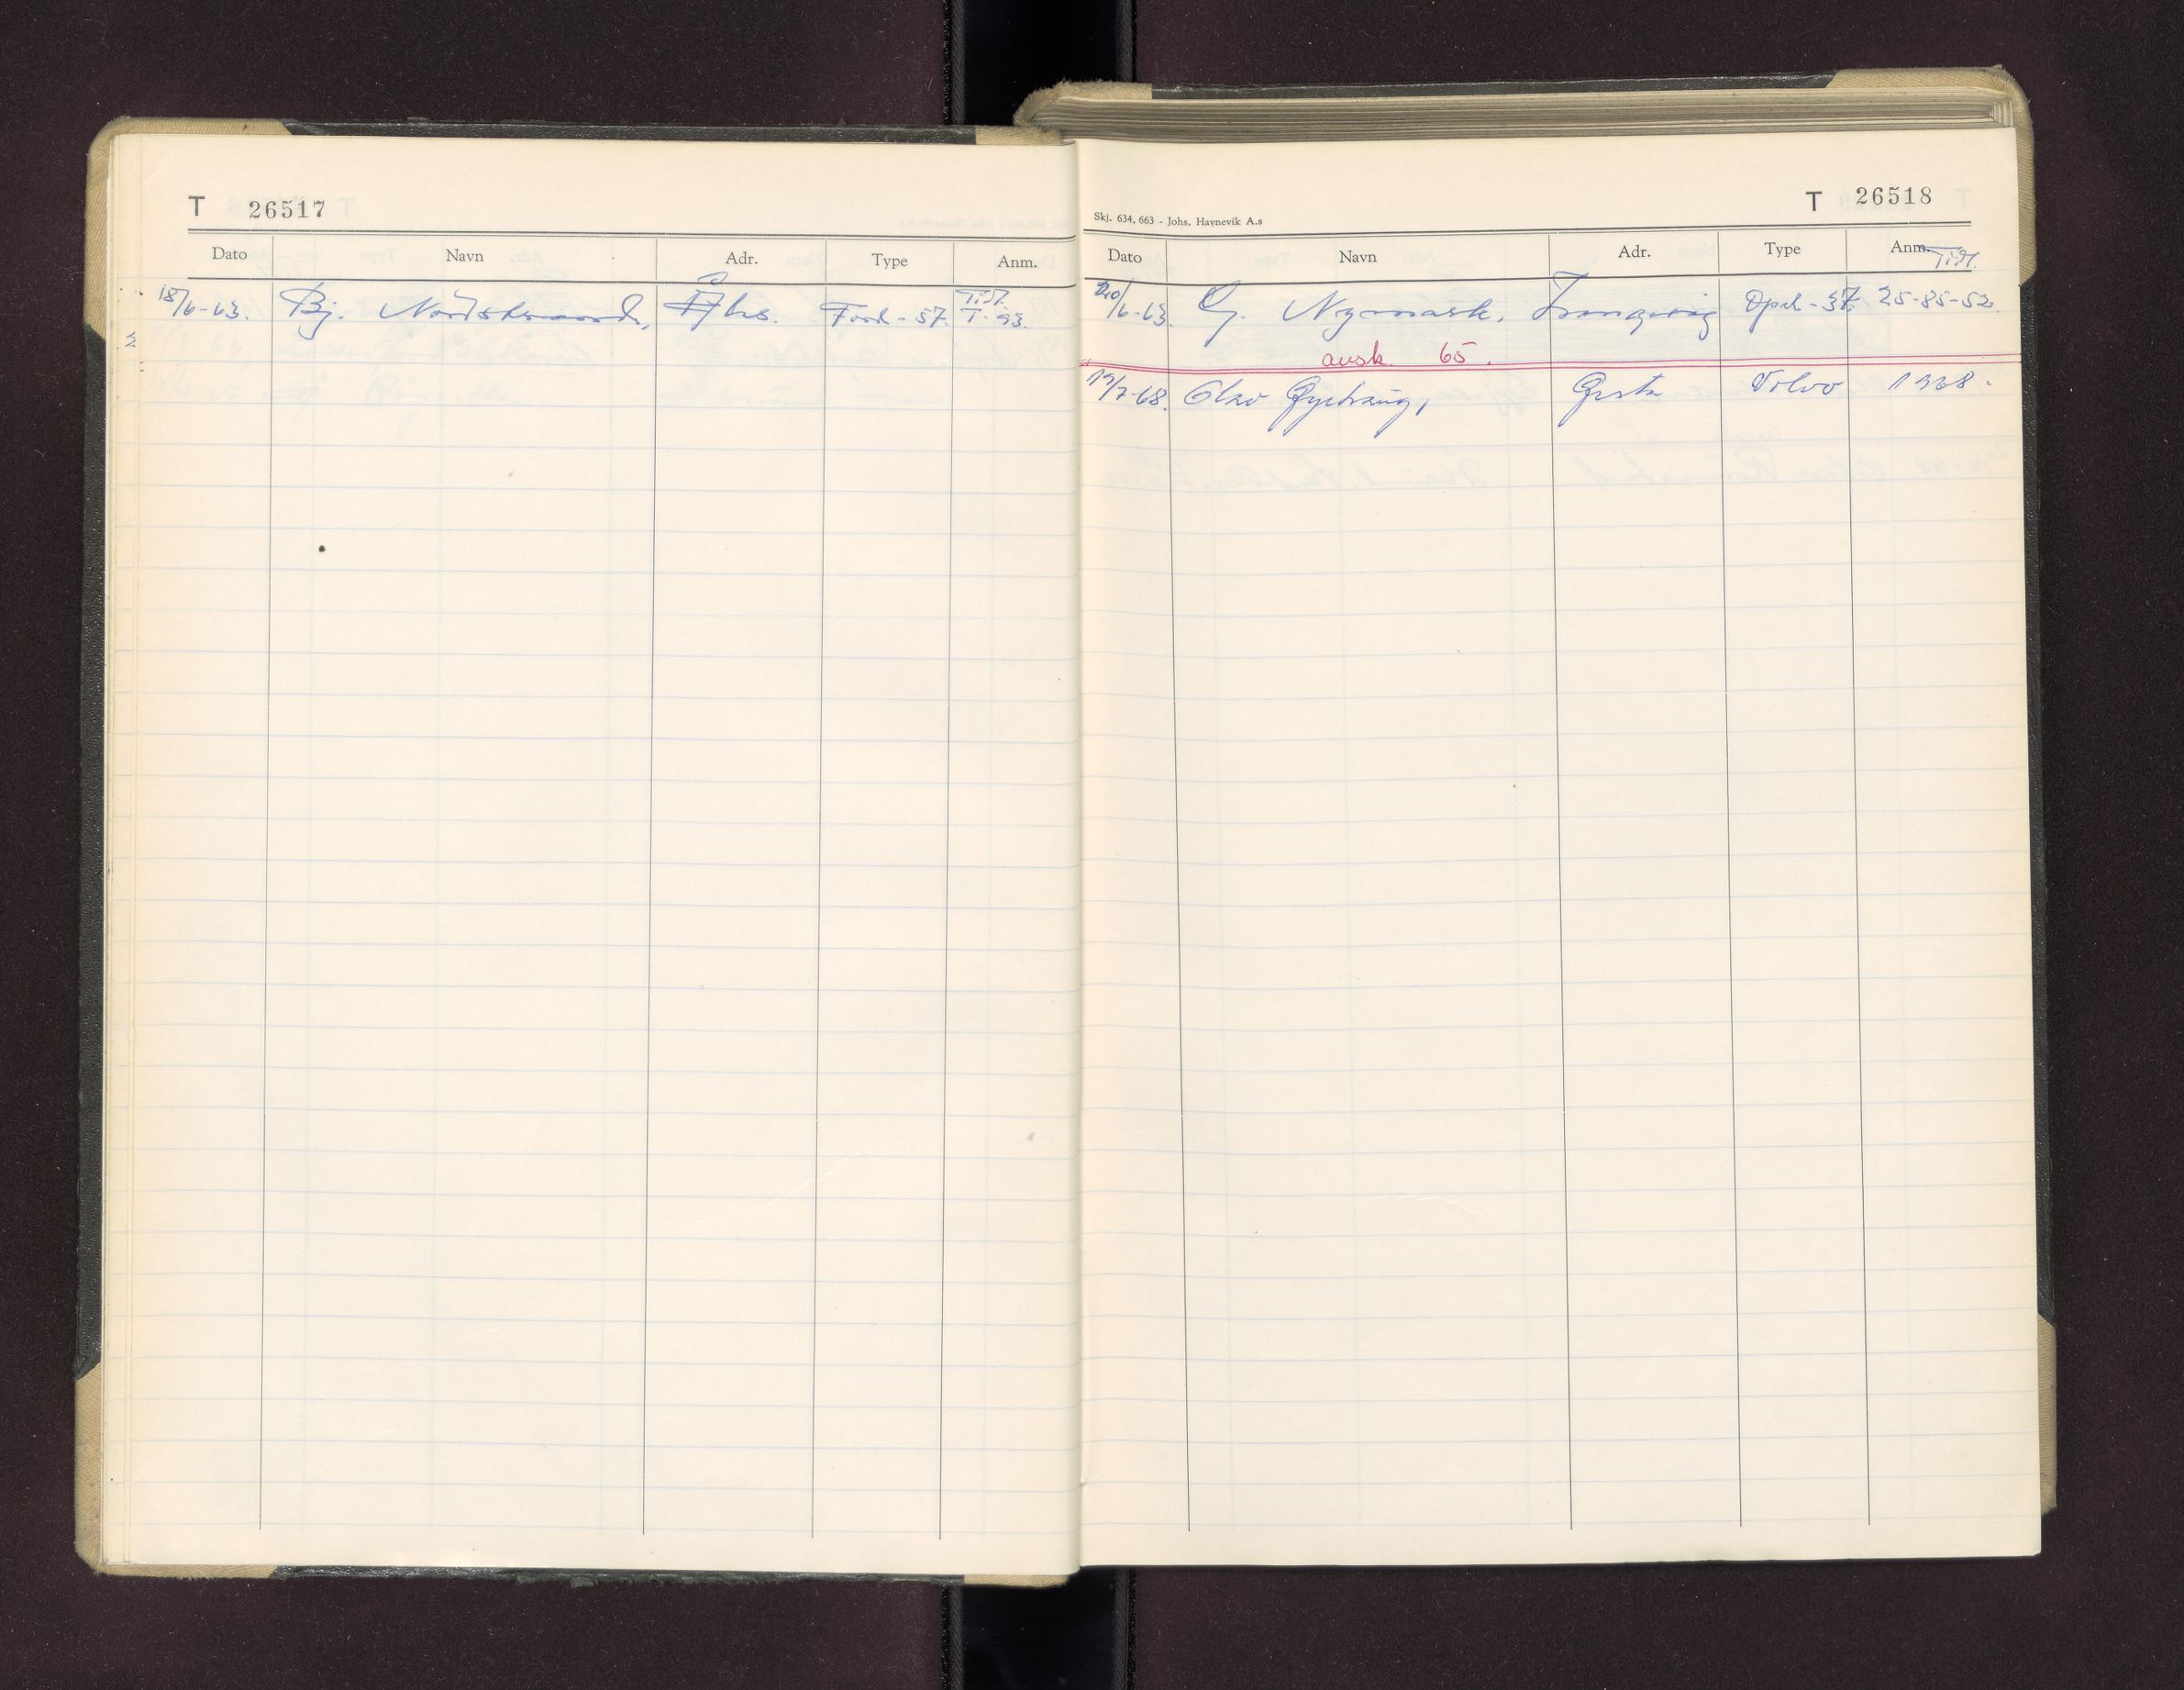 T 26517
Dato Navn Adr. Type Anm.
18/6-63. Bj. Nordstrand, Ford - 57. Tidl. T. 93.
Skj. 634, 663 - Johs. Havnevik A.s
T 26518
Dato Navn Adr. Type Anm. Tidl.
20/6-63. Nymark, Opel - 37. 25-85-52.
avsk. 65.
19/7-68. Olav Ørsta Volvo 1968.